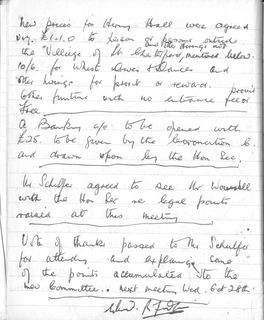 New prices for Hiring Hall were agreed
viz. £1.1.0 to team or persons outside
the Village of St and the Hirings not mentioned below.
10/6. for Whist Drives & Dances and
other hirings for profit or reward.
Other functions with no entrance fee or
Free
A Banking a/c to be opened with
£25. to be given by the Coronation
and drawn upon by the Hon Sec.
Mr agreed to see Mr
with the Hon Sec re legal points
raised at this meeting
Vote of thanks passed to Mr
for attending and explaining some
of the points accumulated to the
new Committee. next meeting Wed. Oct 28th.